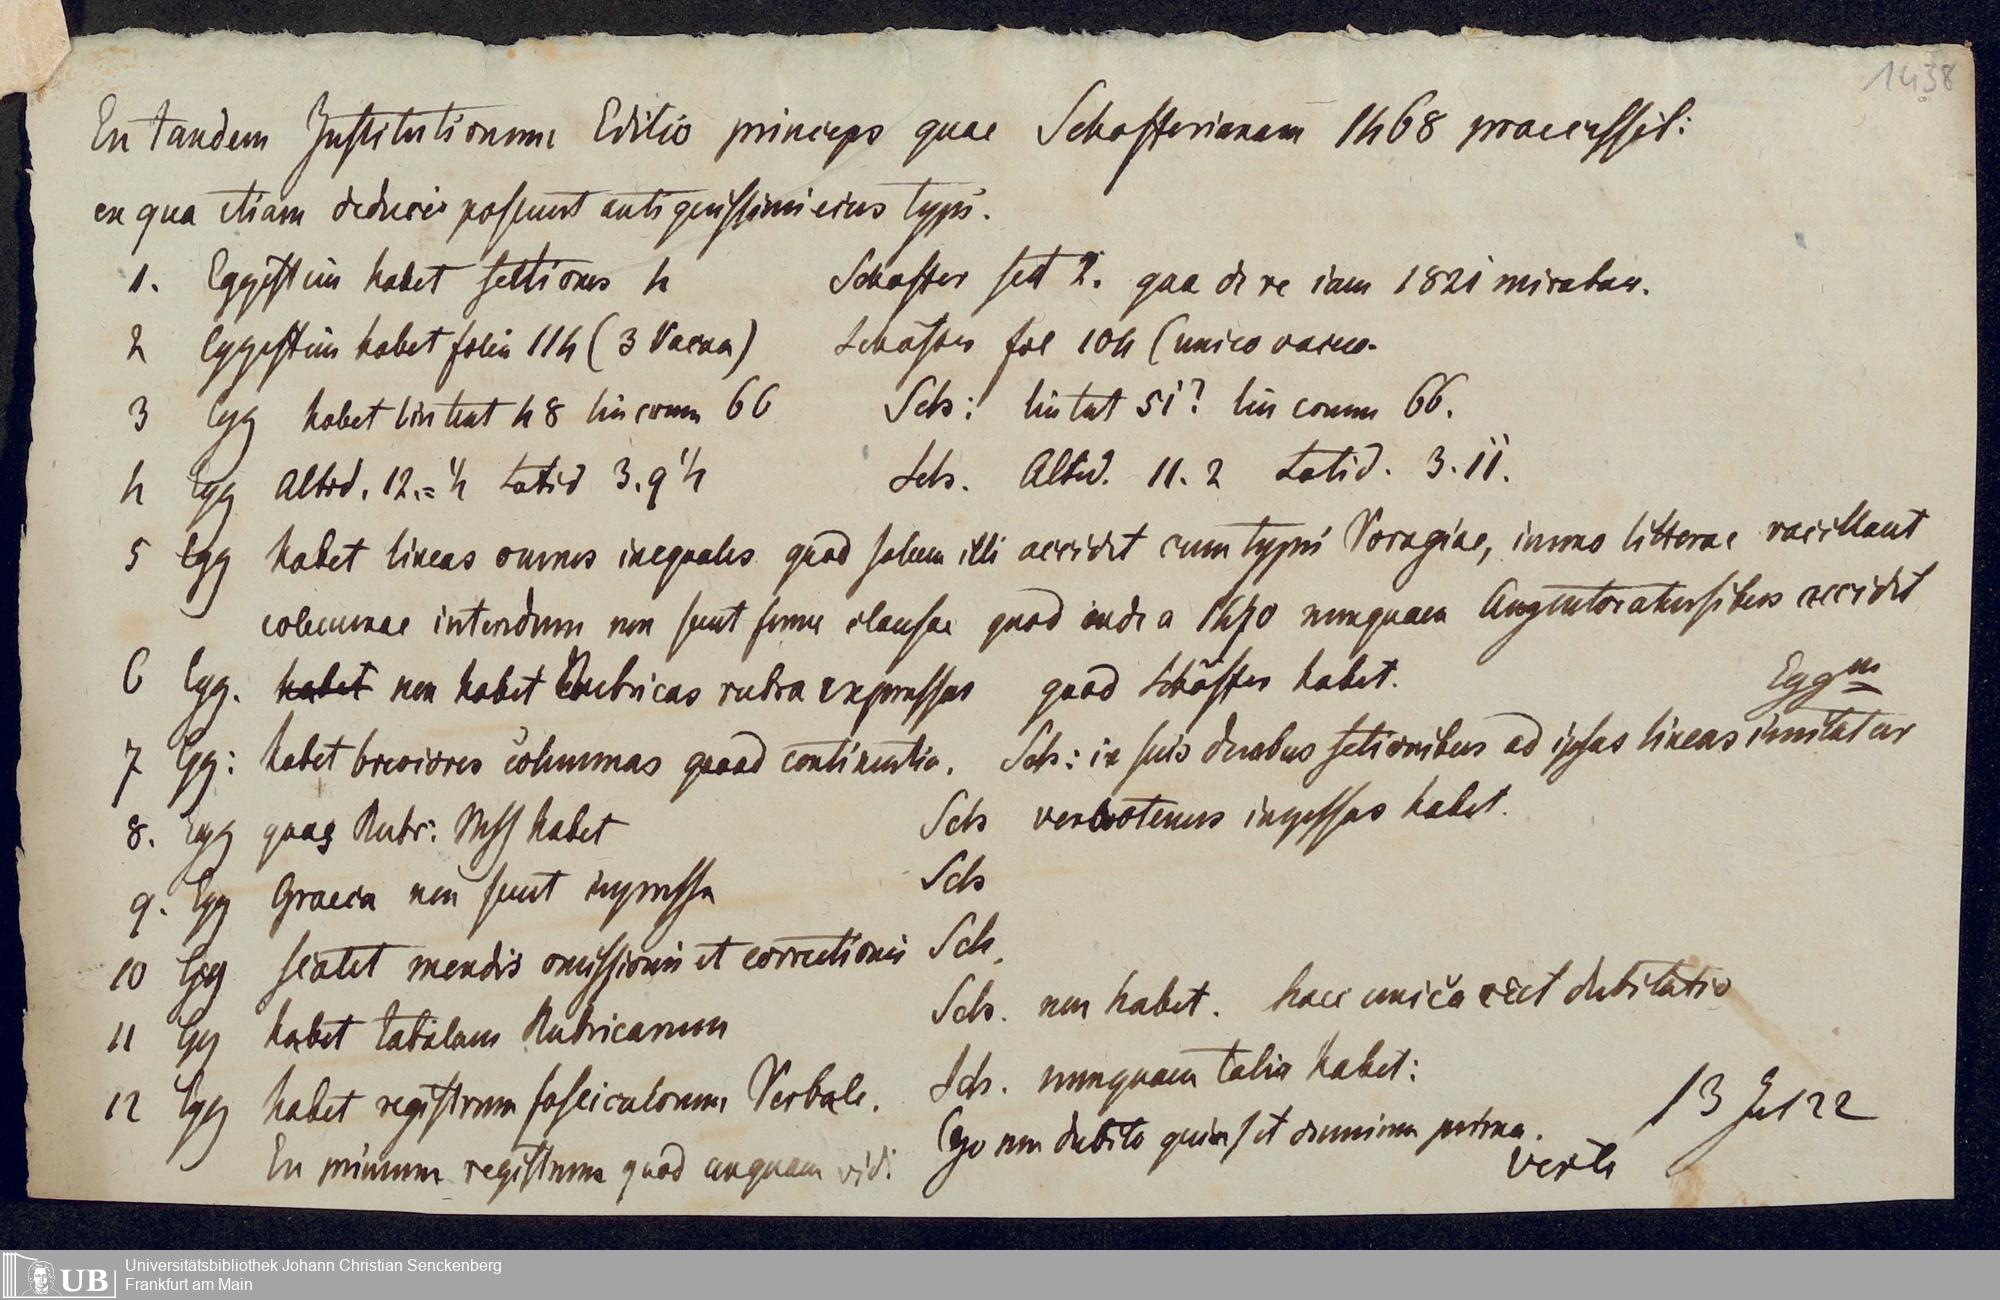 1438
En tandem Institutionum Editio princeps quae Schoefferianam 1468 praecessit:
ex qua etiam deduci possunt antiquissimi eius typi.
1. Eggestein habet sectiones 4 Schöffer sect 2. qua de re iam 1821 mirabar.
2 Eggestein habet folia 114 (3 Vacua) Schöffer fol 104 (unico vacuo.
3 Egg habet lin text 48 lin comm 66 Sch: lin text 51? lin comm 66.
4 Egg Altid. 12.= 1/4 Latid 3.9 1/4 Sch. Altid. 11.2 Latid. 3.11.
5 Egg habet lineas omnes inequales quod solum illi accidit cum typis Voragine, immo litterae vacillant
columnae interdum non sunt fine clausae quod inde a 1470 nunquam Argentoratensibus accidit
6 Egg. habet non habet Rubricas rubra expressas quod Schöffer habet. Egg m
7 Egg: habet breviores columnas quoad continentia. Sch: in suis duabus sectionibus ad ipsas lineas imitatur
8. Egg quas Rubr: Mss habet Sch verbotenus impressas habet.
9. Egg Graeca non sunt impressa Sch
10 Egg scatet mendis omissionis et correctionis Sch.
11 Egg habet tabulam Rubricarum Sch. non habet. haec unica est dubitatio
12 Egg habet registrum fasciculorum Verbale. Sch. nunquam talia habet:
En primum registrum quod unquam vidi Ego non dubito quin sit omnium prima. 13 Jul 22
verte
Universitätsbibliothek Johann Christian Senckenberg
Frankfurt am Main
UB